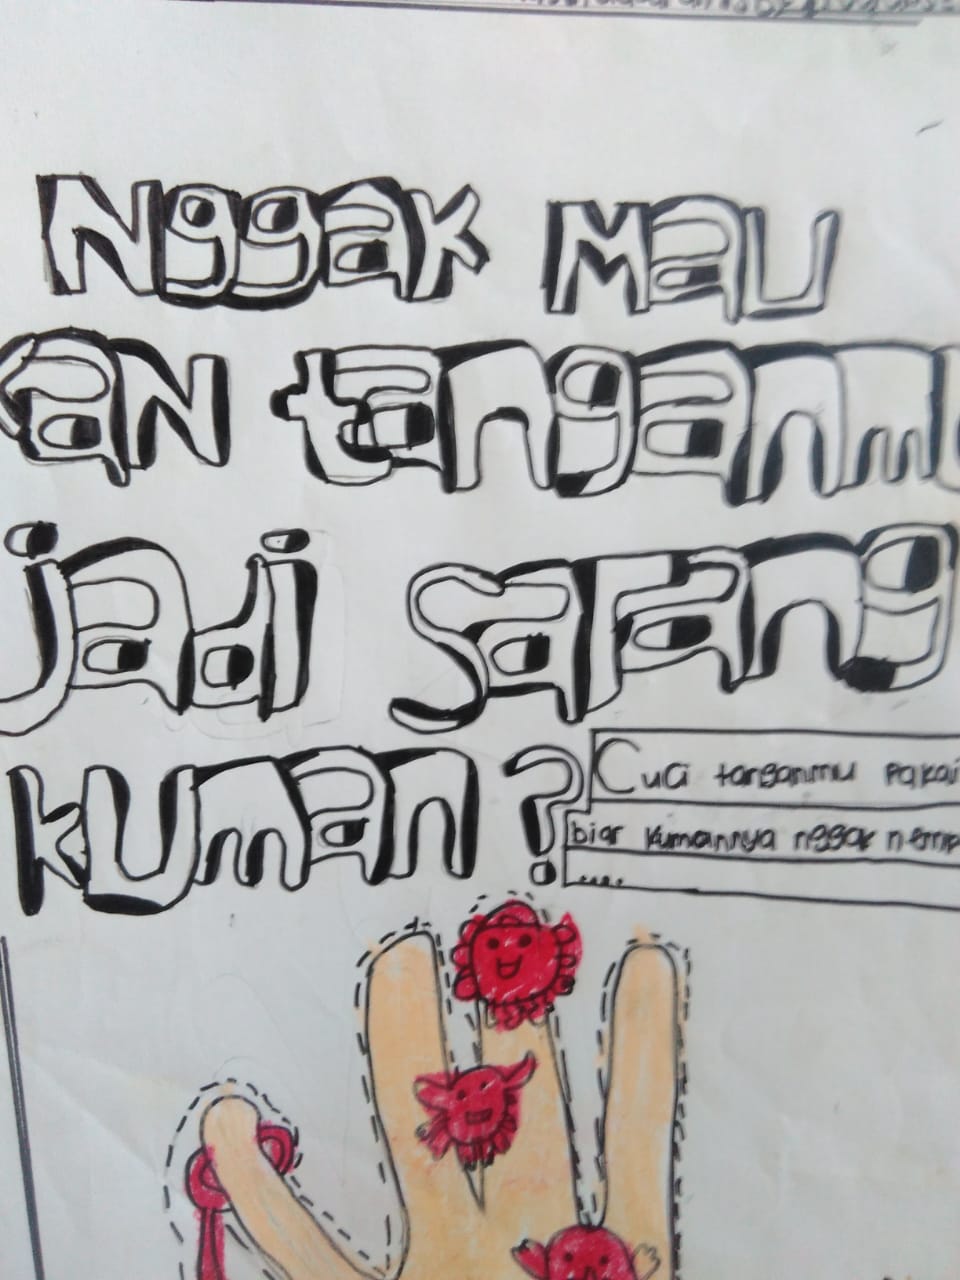 Nggak Mau
an tanganmu
jadi sarang
kuman?
Cuci tanganmu pakai
biar kumannya nggak nemp
....